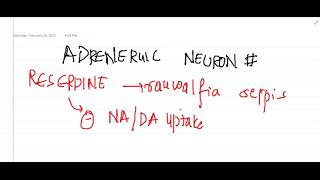 Saturday, February 20, 2021 4:05 PM
ADRENERUIC NEURON #
RESERDINE → rauwalfia serpis
⊖ NA/DA uptake